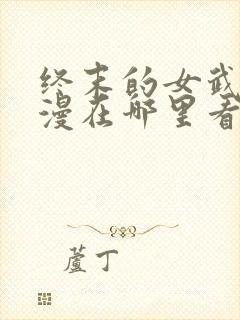 终末的女武
漫在哪里看
蘆丁